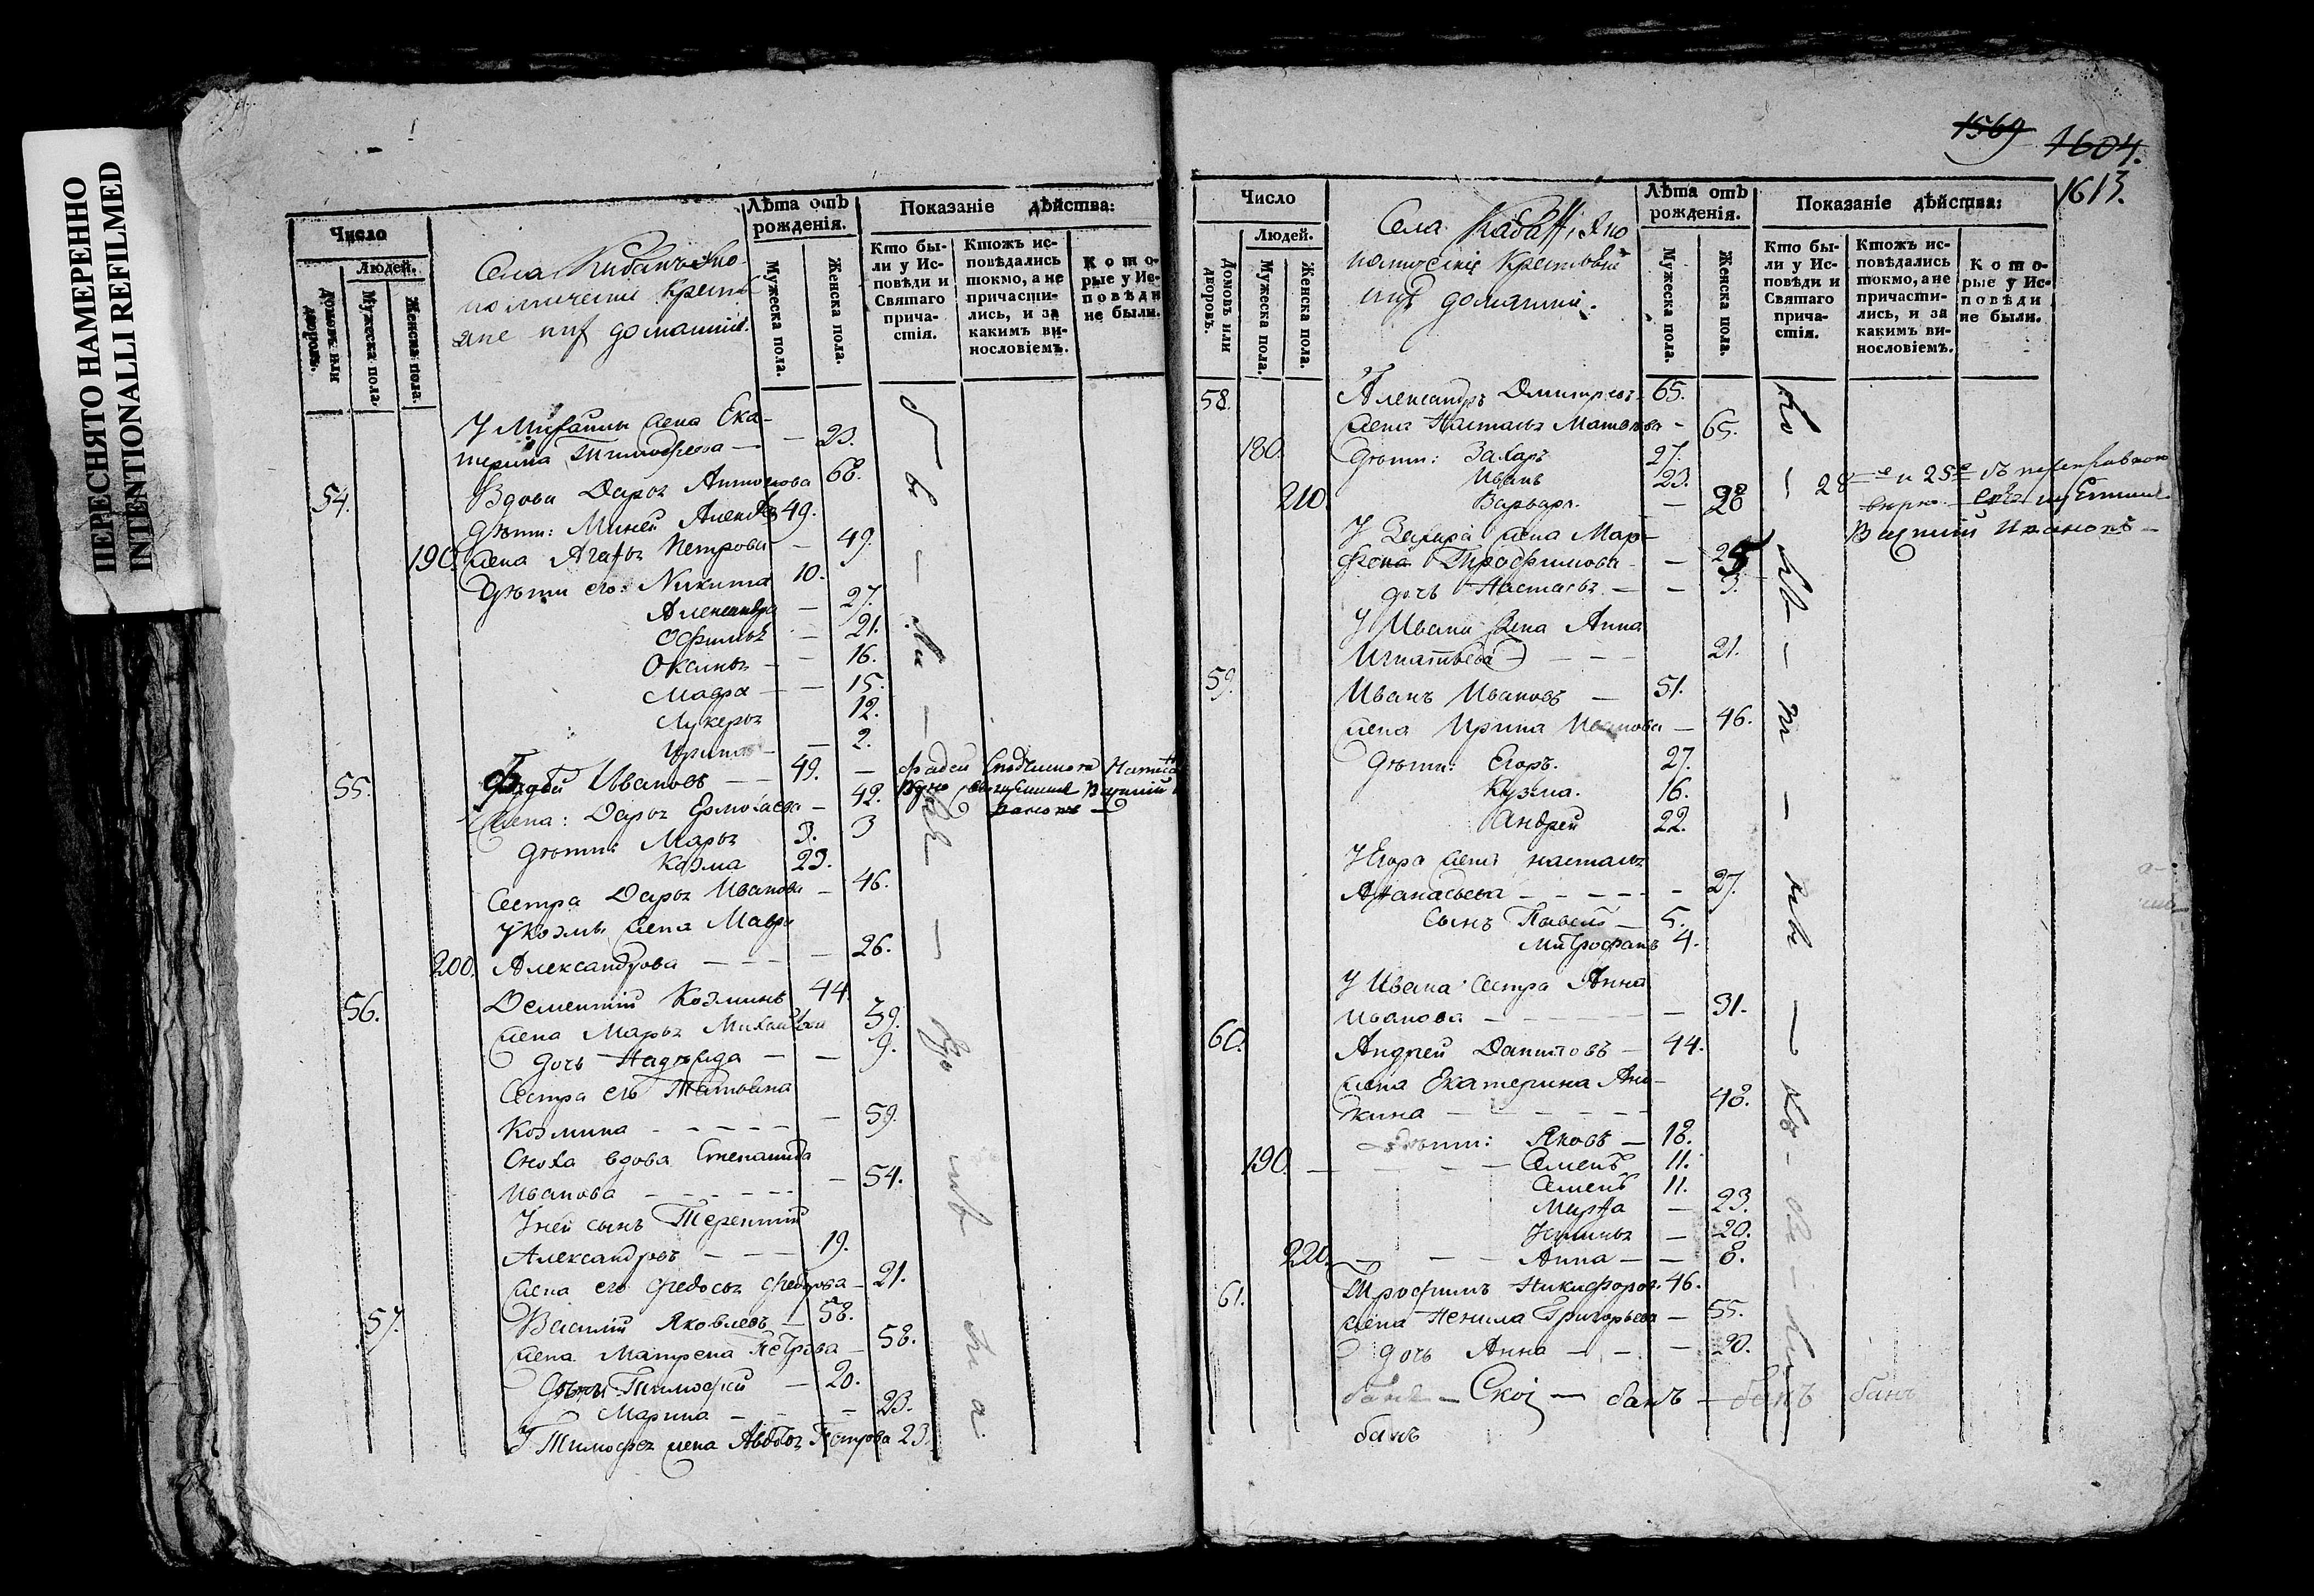 ПЕРЕСНЯТО НАМЕРЕННО
INTENTIONALLI REFILMED
Число
Людей.
Домовъ или дворовъ.
Мужеска пола.
Женска пола.
ане ихъ домашнія.
Лѣта отъ рожденія.
Мужеска пола.
Женска пола.
Показаніе дѣйства:
Кто бы-
ли у Ис-
повѣди и
Святаго
прича-
стія.
Ктожъ ис-
повѣдались
токмо, а не
причасти-
лись, и за
какимъ ви-
нословіемъ.
Кото-
рые у Ис-
повѣди
не были.
У Михайлы жена Ека-
терина Тимофеева — — 23.
54. Вдова Дарья Антонова 68.
Дѣти: Миней 49.
190. жена Агафья Петрова — 49.
Дѣти его: Никита 10.
Александра — 27.
Офимья — 21.
Оксинья — 16.
Мавра — 15.
Лукерья 12.
Ирина — 2.
55. Фадѣй Ивановъ — 49.
жена: Дарья Ермолаева — 42.
дѣти: Марья 3. 3
Козма 23.
Сестра Дарья Иванова — 46.
У Козмы жена Мавра
200. Александрова — — — 26.
56. Дементій Козминъ 44.
жена Марья Михайлова 39.
дочь Надежда — — 9.
Сестра его Татьяна
Козмина — — — — 59.
Сноха вдова Степанида
Иванова — — — — 54.
У ней сынъ Терентій
Александровъ — — — 19.
жена его Федосья Федорова — 21.
57. Василій Яковлевъ — 58.
жена Матрена Петрова — 58.
Дѣти: Тимофей — 20.
Марина — — 23.
У Тимофея жена Авдотья Петрова 23.
1569 1604.
1613.
Число
Людей.
Домовъ или дворовъ.
Мужеска пола.
Женска пола.
Села
ихъ домашнія.
Лѣта отъ рожденія.
Мужеска пола.
Женска пола.
Показаніе дѣйства:
Кто бы-
ли у Ис-
повѣди и
Святаго
прича-
стія.
Ктожъ ис-
повѣдались
токмо, а не
причасти-
лись, и за
какимъ ви-
нословіемъ.
Кото-
рые у Ис-
повѣди
не были.
58. Александръ Дмитревъ 65.
жена Настасья — 65.
180. дѣти: Захаръ 27.
Иванъ 23.
210. Варвара. — 28
У Захара жена Мар-
фена Трофимова — — 25
дочь Настасья — — 3.
У Ивана жена Анна
Игнатьева — — — 21.
59. Иванъ Ивановъ — 51.
жена Ирина Иванова — 46.
Дѣти: Егоръ. 27.
Кузма. 16.
Андрей 22.
У Егора жена Настасья
Афанасьева — — — — — 27.
сынъ Павелъ — 5.
Митрофанъ 4.
У Ивана сестра Анна
Иванова — — — — — 31.
60. Андрей Даниловъ — 44.
жена Екатерина Ани-
кина — — — — — 48.
дѣти: Яковъ — 18.
190. — — — — Семенъ 11.
Семенъ 11.
Марфа — 23.
— 20.
220. — — — Анна — — 8.
61. Трофимъ Никифоров. 46.
жена Ненила Григорьева — 55.
дочь Анна — — — 20.
банъ банъ банъ
банъ